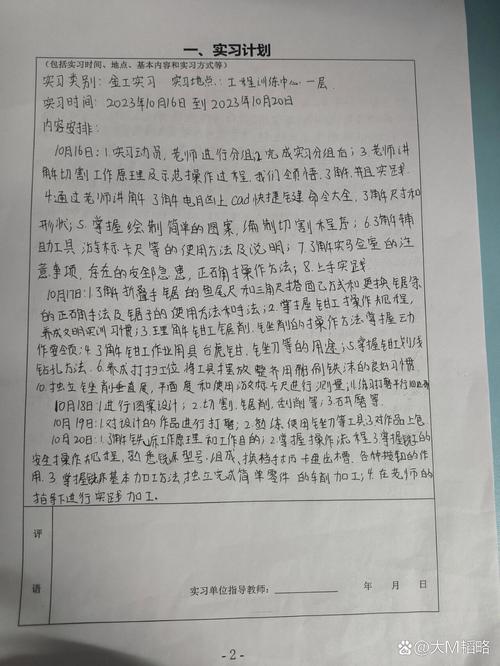 一、实习计划
（包括实习时间、地点、基本内容和实习方式等）
实习类别：金工实习 实习地点：工程训练中心一层
实习时间：2023年10月16日到2023年10月20日
内容安排：
10月16日：1.实习动员，老师进行分组；2.完成实习分组后；3.老师讲
解切割工作原理及示范操作过程，我们领悟、了解，并且实践
4.通过老师讲解，了解电脑上cad快捷键命令大全，了解尺寸和
形状；5.掌握绘制简单的图案，编制切割程序；6.了解辅
助工具，游标卡尺等的使用方法及说明；7.了解实验室的注
意事项，存在的安全隐患，正确操作方法；8.上手实践
10月17日：1.了解折叠手锯的鱼尾尺和三角尺搭配方式和更换锯条
的正确手法及锯子的使用方法和手法；2.掌握钳工操作规程，
养成文明实训习惯；3.理解钳工锯削、锉削的操作方法掌握动
作要领；4.了解钳工作业用具台虎钳、锉刀等的用途；5.掌握钳工划线
钻孔方法；6.养成打扫工位，将工具摆放整齐
10.独立锉削垂直度，平面度和使用游标卡尺进行测量；11.练习打磨平行
10月18日：1.进行图案设计；2.切割、锯削、刮削等；3.打磨等
10月19日：1.对设计的作品进行打磨；2.熟练使用锉刀等工具3.对作品上色
10月20日：1.了解铣床工作原理和工作目的；2.掌握操作流程 3.掌握铣工的
安全操作规程，熟悉铣床型号、组成、换档手柄
用。3.掌握铣床基本加工方法，独立完成简单零件的车削加工；4.在老师的
指导下进行实践加工。
评
语
实习单位指导教师： 年 月 日
- 2 -
大M韬略